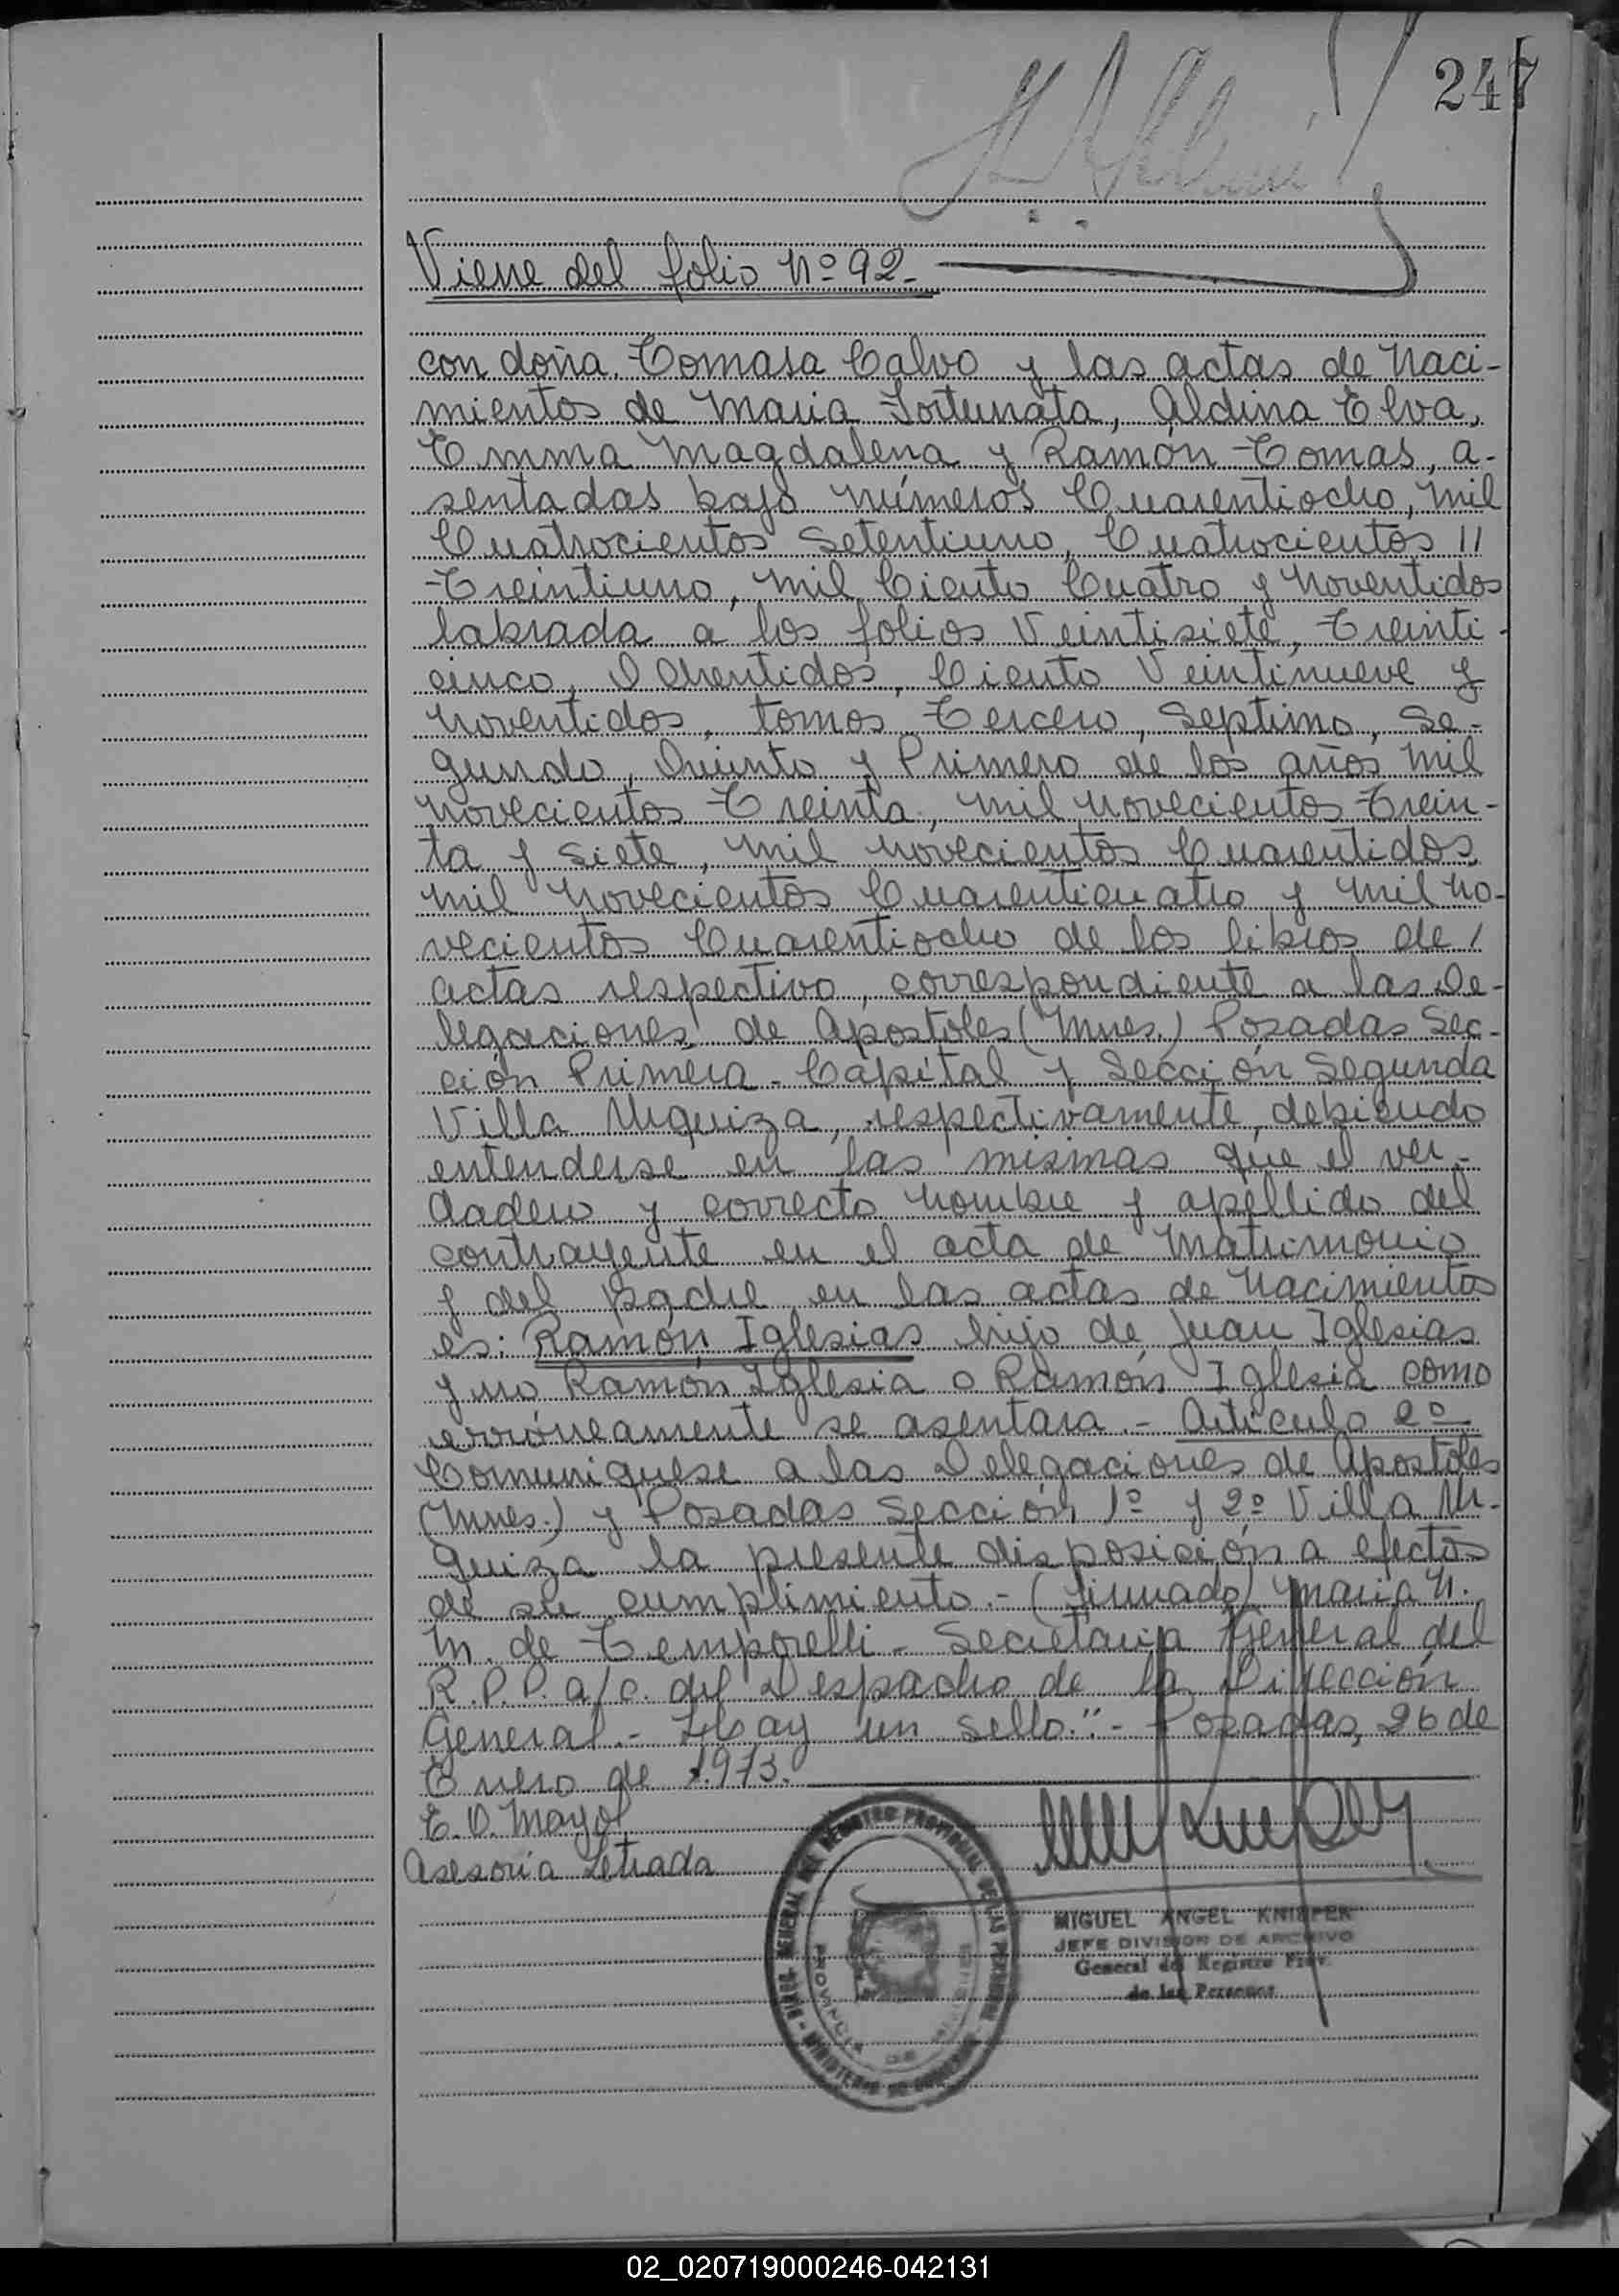 247
Viene del folio Nº 92.-
con doña Tomasa Calvo y las actas de Naci-
mientos de Maria Fortunata, Aldina Elva,
Emma Magdalena y Ramón Tomas, a-
sentadas bajo números Cuarentiocho, mil
Cuatrocientos Setentiuno, Cuatrocientos //
Treintiuno, mil Ciento Cuatro y Noventidos
labrada a los folios Veintisiete, Treinti-
cinco, Ochentidos, Ciento Veintinueve y
Noventidos, tomos Tercero, Septimo, Se-
gundo, Quinto y Primero de los años mil
Novecientos Treinta, mil Novecientos Trein-
ta y Siete, mil Novecientos Cuarentidos,
mil Novecientos Cuarenticuatro y mil No-
vecientos Cuarentiocho de los libros de /
actas respectivo, correspondiente a las De-
legaciones de Apostoles (Mnes.) Posadas Sec-
ción Primera - Capital y Sección Segunda
Villa Urquiza, respectivamente, debiendo
entenderse en las mismas que el ver-
dadero y correcto nombre y apellido del
contrayente en el acta de Matrimonio
y del padre en las actas de Nacimientos
es: Ramón Iglesias hijo de Juan Iglesias
y no Ramón Iglesia o Ramón Iglesia como
erróneamente se asentara.- Artículo 2º
Comuniquese a las Delegaciones de Apostoles
(Mnes.) y Posadas Sección 1º y 2º Villa Ur-
quiza la presente disposición a efectos
de su cumplimiento.- (Firmado) Maria N.
M. de Temporelli - Secretaria General del
R.P.P. a/c. del Despacho de la Dirección
General.- Hay un sello."- Posadas, 26 de
Enero de 1.973.
E.O. Mayol
Asesoría Letrada
MIGUEL ANGEL KNIEPER
JEFE DIVISION DE ARCHIVO
General del Registro Prov.
de las Personas
GENERAL DEL REGISTRO PROVINCIAL DE LAS PERSONAS
PROVINCIA DE
02_020719000246-042131